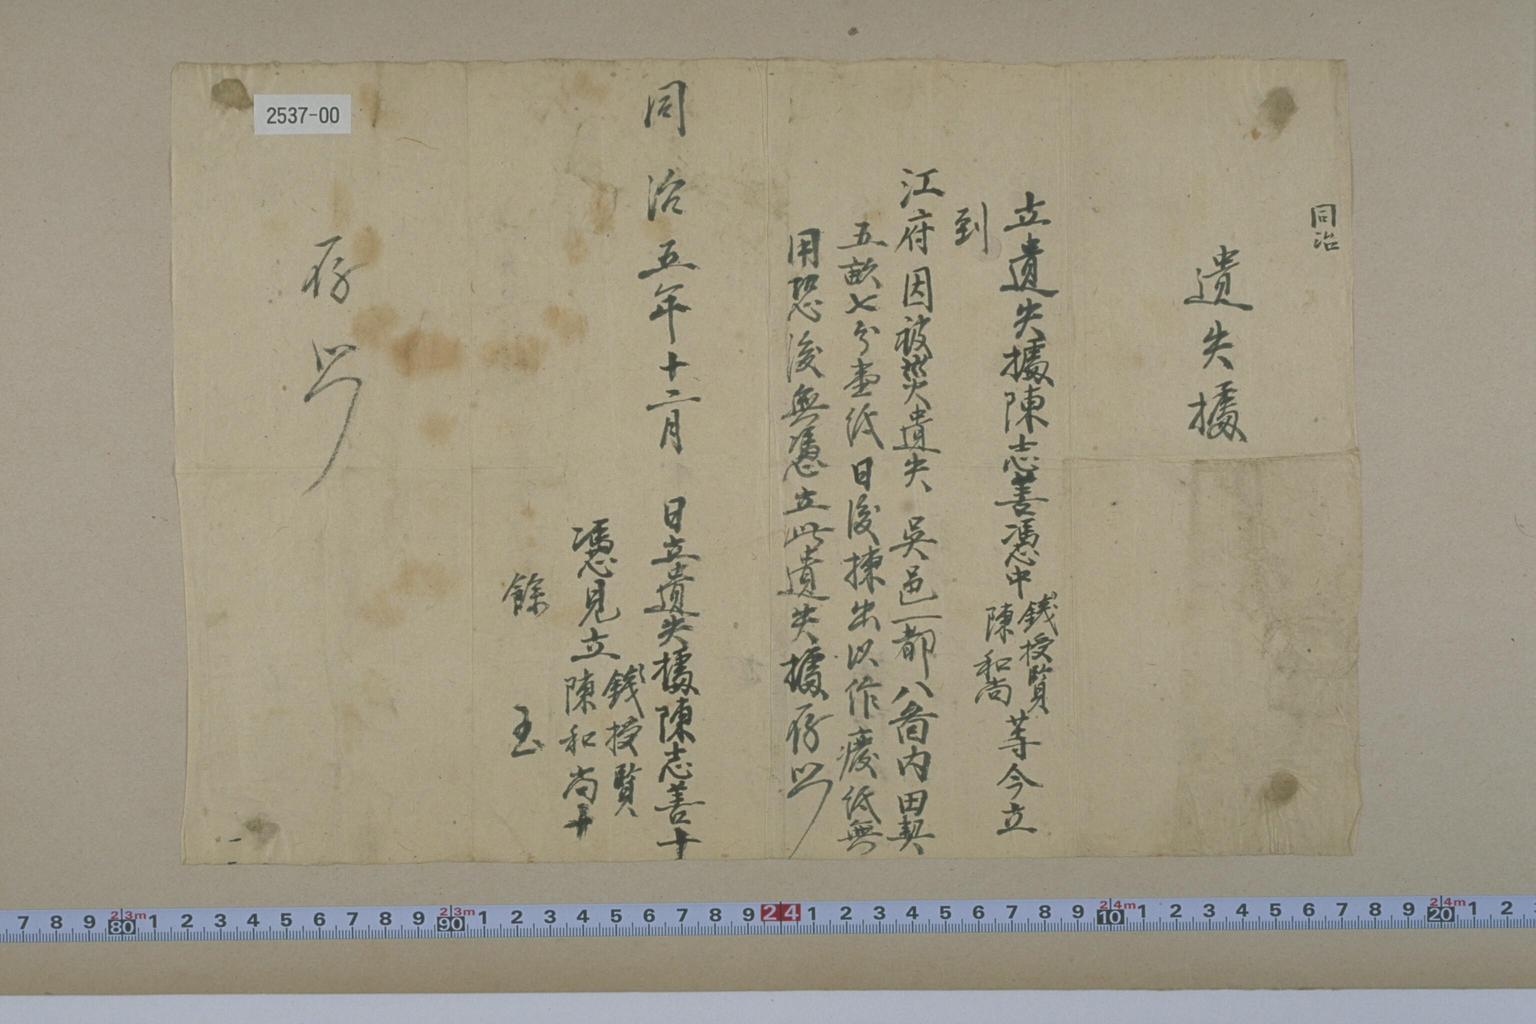 同治
遺失據
立遺失據陳志善憑中錢授賢陳和尚等今立
到
江府因被災遺失 吳邑一都八啚内田契
五畝七分壹紙日後揀出以作廢紙無
用恐後無憑立此遺失據存照
同治五年十二月 日立遺失據陳志善十
憑見立錢授賢陳和尚
餘 玉
存照
2537-00
7 8 9 80 1 2 3 4 5 6 7 8 9 90 1 2 3 4 5 6 7 8 9 24 1 2 3 4 5 6 7 8 9 10 1 2 3 4 5 6 7 8 9 20 1 2
23m 23m 24m 24m